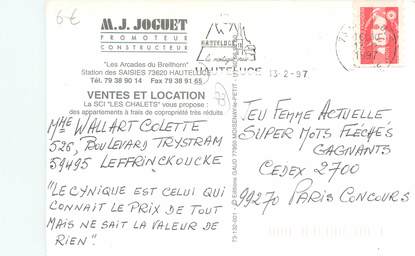 6€
M.J. JOGUET
PROMOTEUR
CONSTRUCTEUR
"Les Arcades du Breithorn"
Station des SAISIES 73620 HAUTELUCE
Tél. 79 38 90 14 Fax 79 38 91 65
VENTES ET LOCATION
La SCI "LES CHALETS" vous propose :
des appartements à frais de copropriété très réduits
MME WALLART COLETTE
526, BOULEVARD TRYSTRAM
59495 LEFFRINCKOUCKE
"LE CYNIQUE EST CELUI QUI
CONNAIT LE PRIX DE TOUT
MAIS NE SAIT LA VALEUR DE
RIEN".
HAUTELUCE
13-2-97
JEU FEMME ACTUELLE
SUPER MOTS FLÉCHÉS
GAGNANTS
CEDEX 2700
99270 PARIS CONCOURS